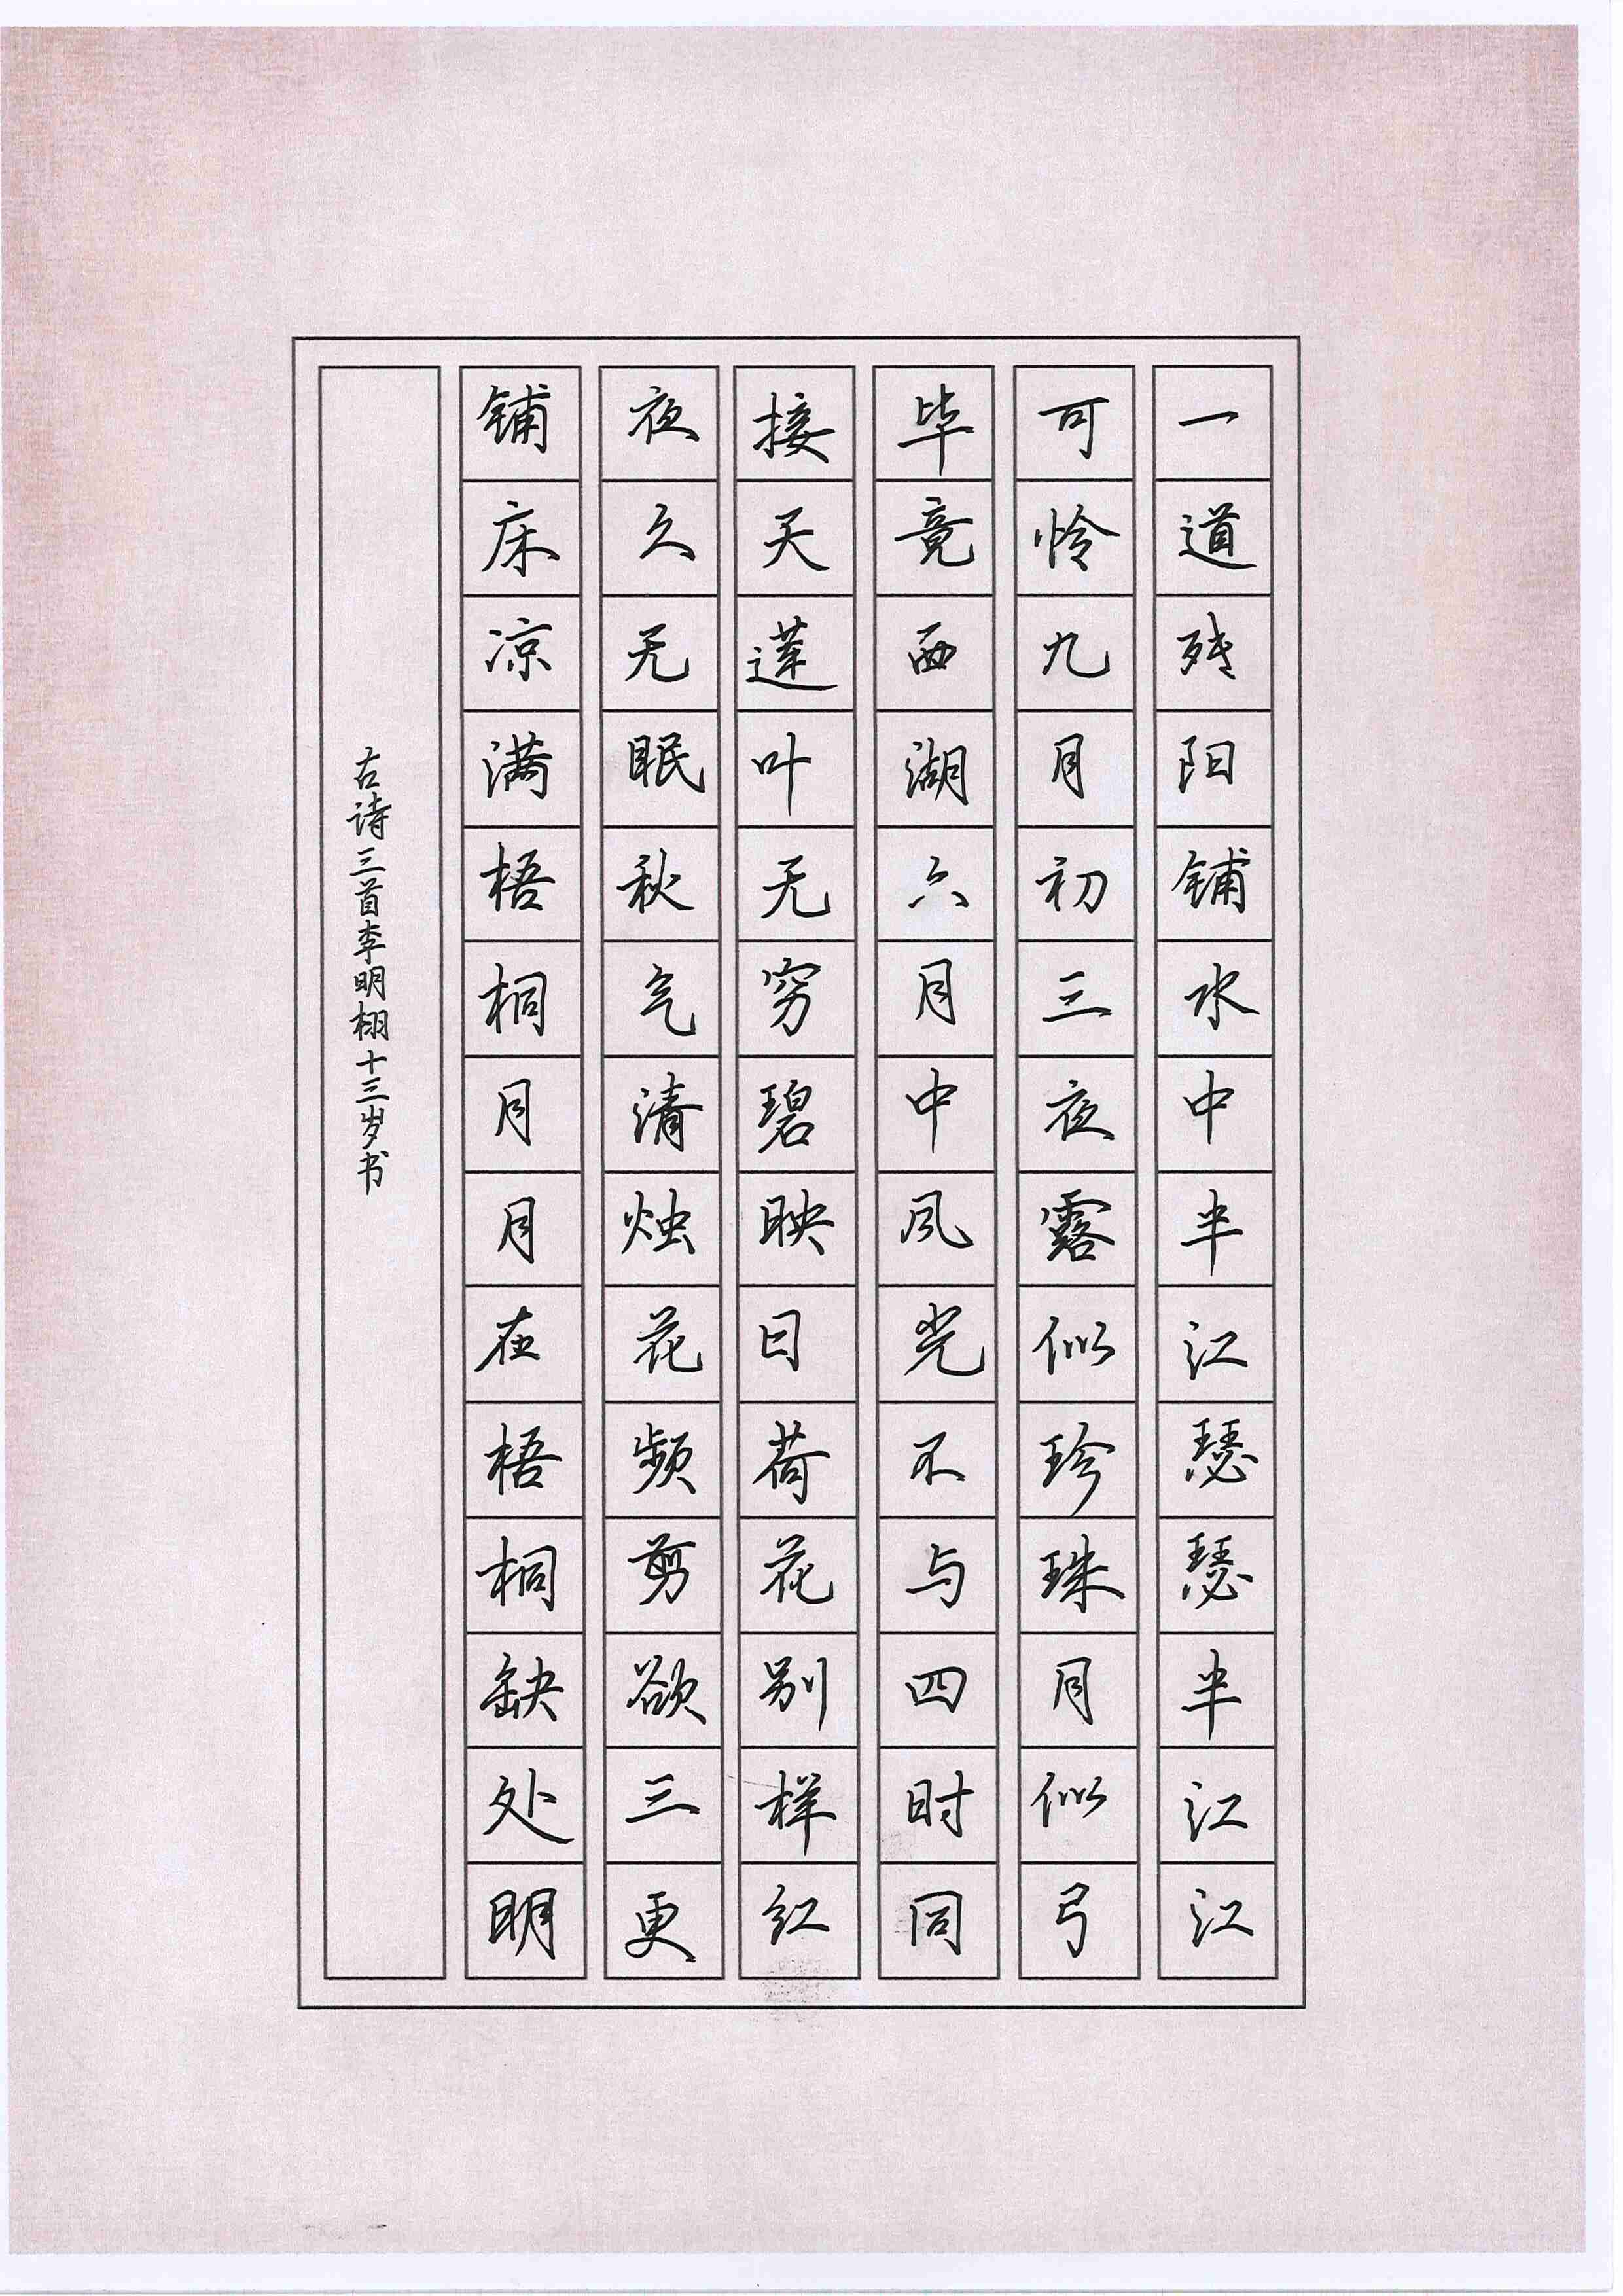 一道残阳铺水中半江瑟瑟半江江
可怜九月初三夜露似珍珠月似弓
毕竟西湖六月中风光不与四时同
接天莲叶无穷碧映日荷花别样红
夜久无眠秋气清烛花频剪欲三更
铺床凉满梧桐月月在梧桐缺处明
古诗三首李明栩十三岁书